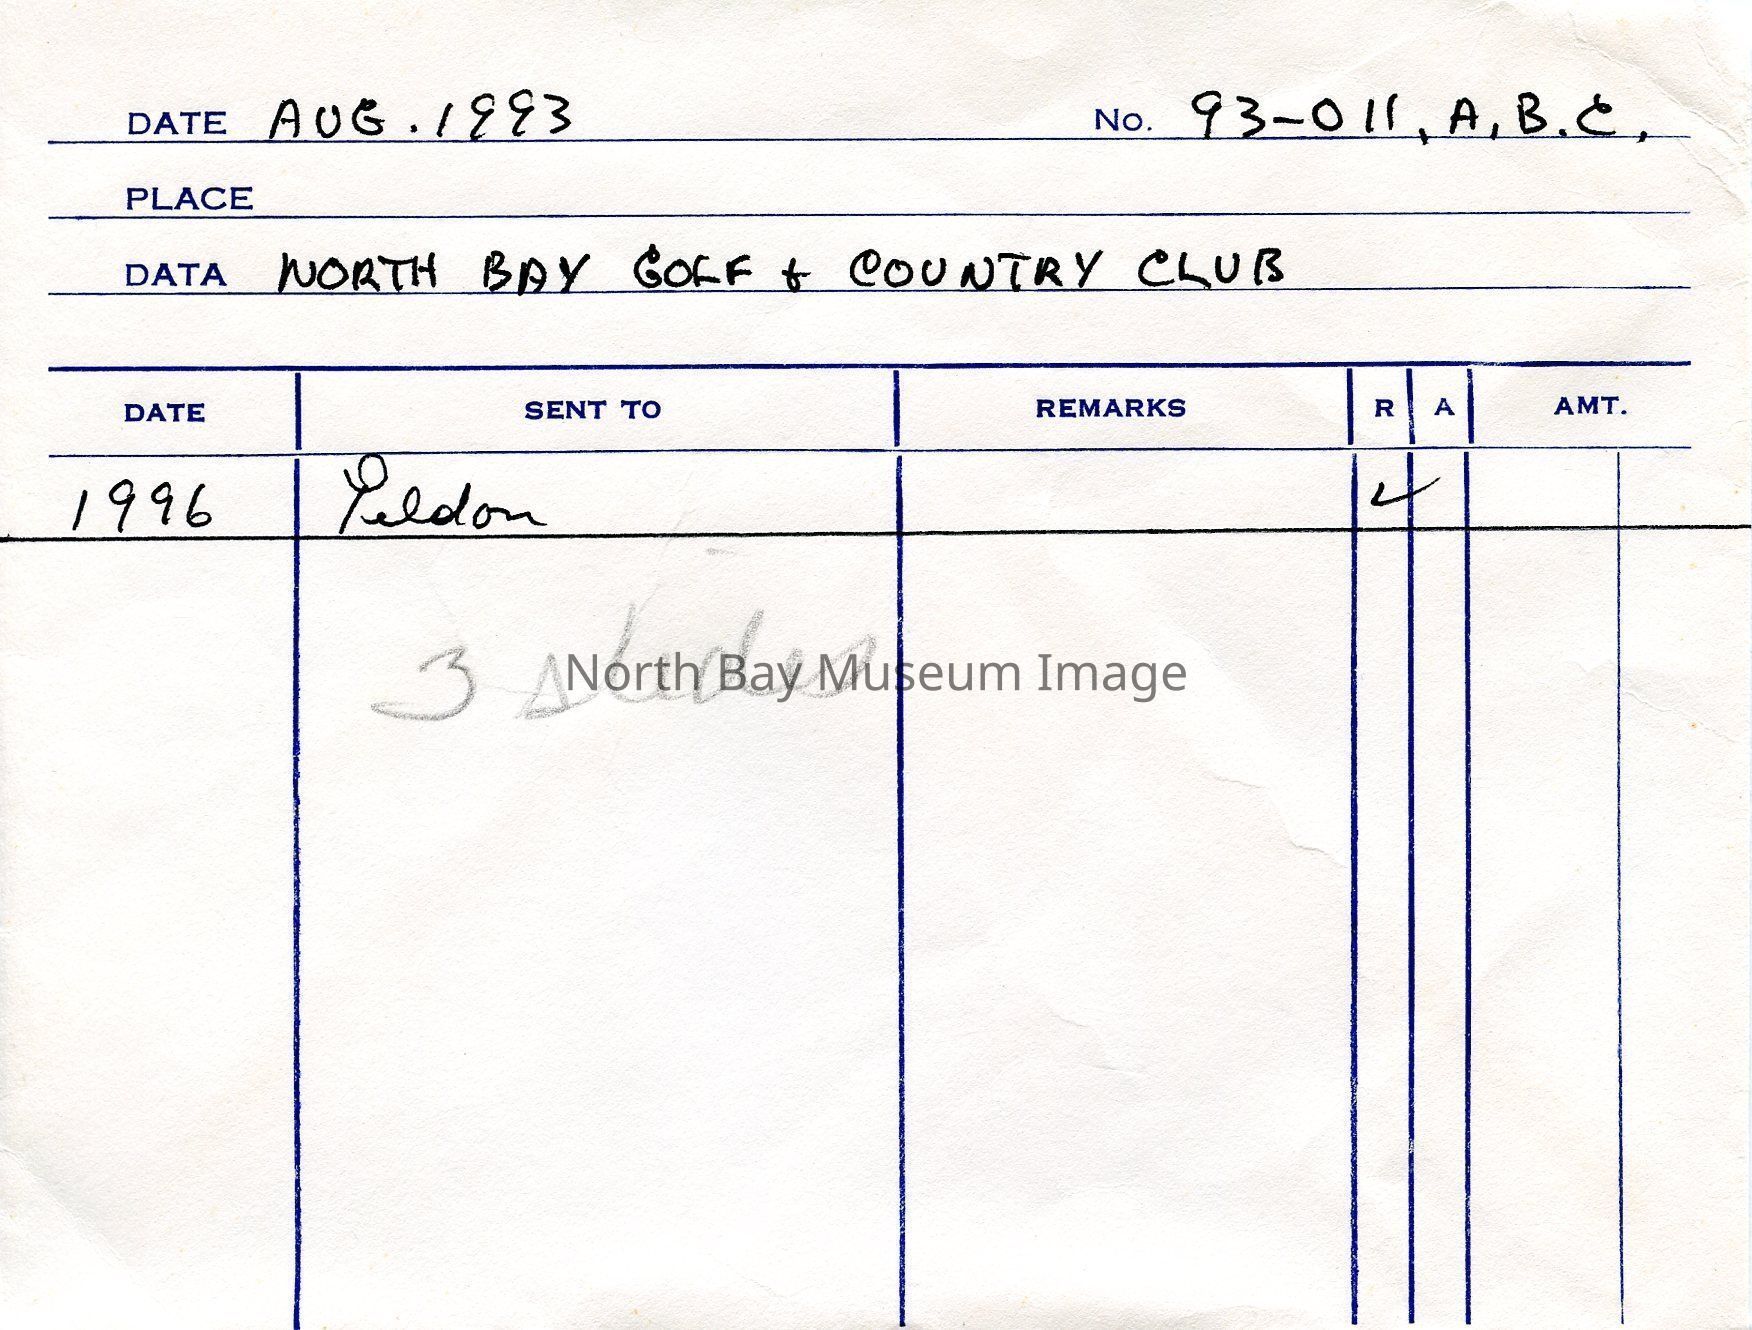 DATE AUG. 1993 No. 93-011, A, B. C,
PLACE
DATA NORTH BAY GOLF & COUNTRY CLUB
DATE SENT TO REMARKS R A AMT.
1996 Yeldon ✓
3 slides
North Bay Museum Image